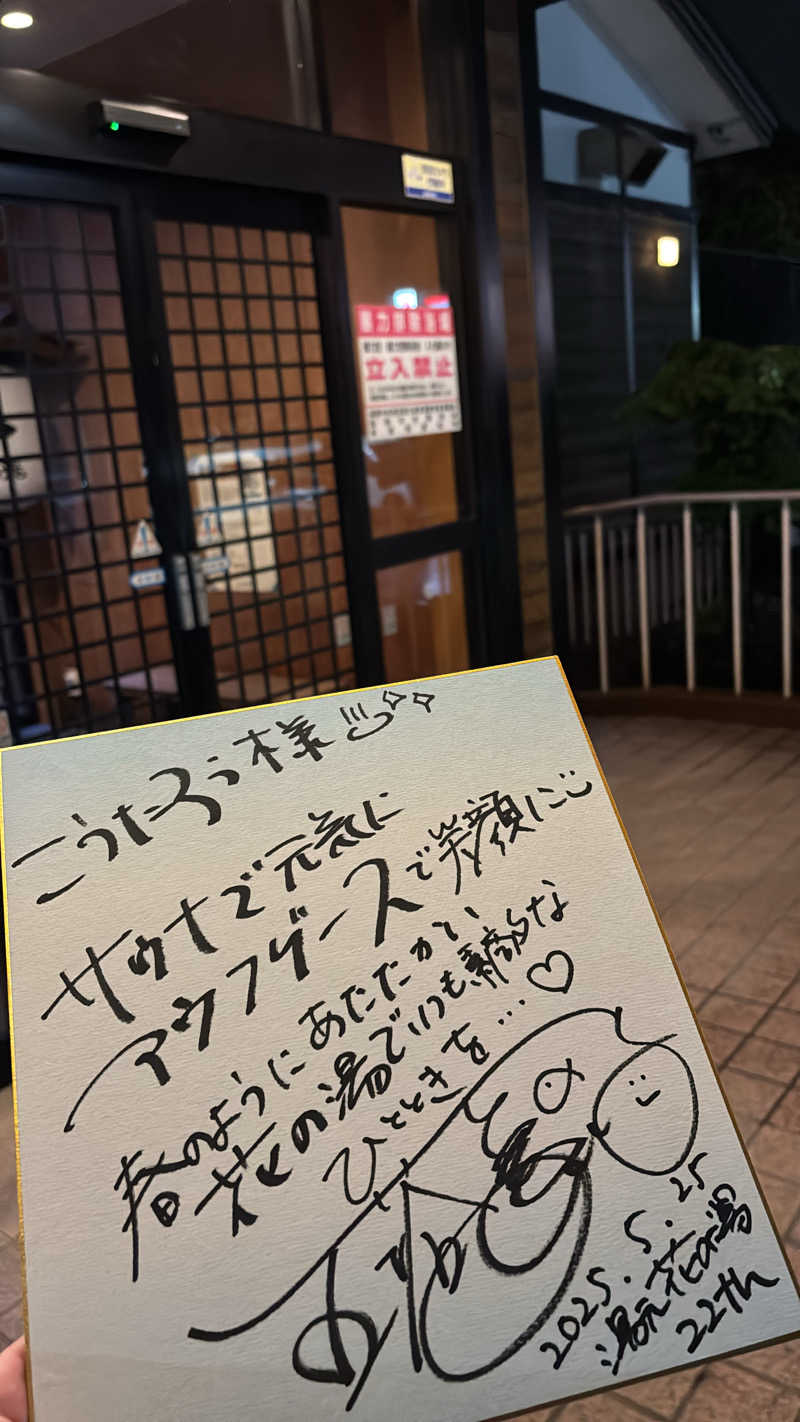 立入禁止
こうたろう様
サウナで元気に
アウフグースで笑顔に
春のようにあたたかい
花の湯でいつも素敵な
ひとときを…♡
2025.5.25
湯元花の湯
22th